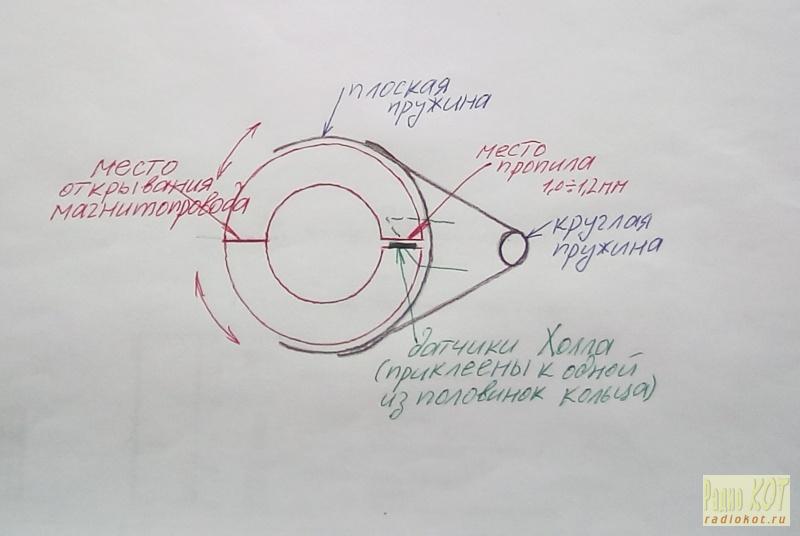 плоская
пружина
место
открывания
магнитопровода
место
пропила
1,0÷1,2мм
круглая
пружина
датчики Холла
(приклеены к одной
из половинок кольца)
Радио КОТ
radiokot.ru